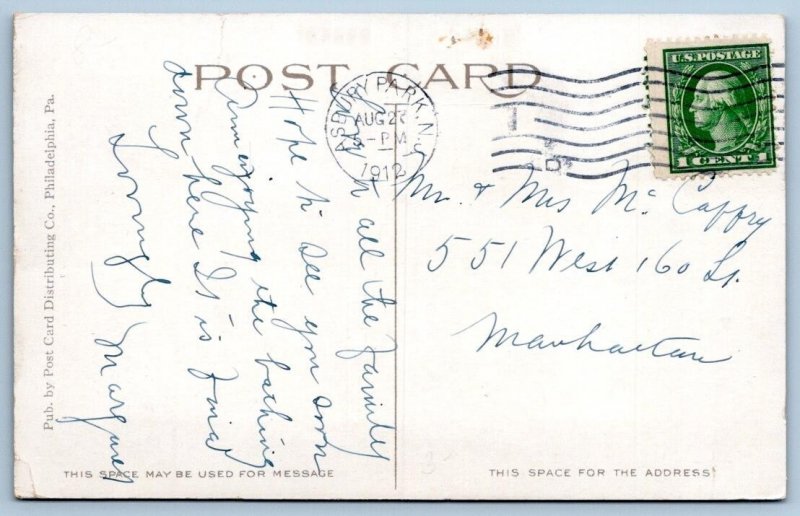 POST CARD
ASBURY PARK, N.J.
AUG 27
-PM
1912
U.S. POSTAGE
1 CENT 1
Love to all the family
Hope to see you soon
Am enjoying the bathing
down here It is fine
Lovingly Margaret
Mr. & Mrs Mc Caffry
551 West 160 St.
Manhattan
Pub. by Post Card Distributing Co., Philadelphia, Pa.
THIS SPACE MAY BE USED FOR MESSAGE
THIS SPACE FOR THE ADDRESS